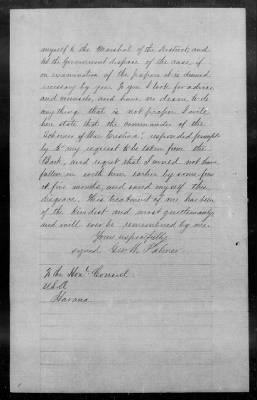 myself to the Marshal of the District, and
let the Government dispose of the case, if
on examination of the papers it is deemed
necessary by you. To you I look for advice
and counsels, and have no desire to do
anything that is not proper. I will
here state that the Commander of the
Schooner of War responded promptly
by to my request to be taken from the
Bark, and regret that I would not have
fallen in with him earlier by some four
or five months, and saved myself this
disgrace. His treatment of me has been
of the kindest and most gentlemanly
and will ever be remembered by me.
Yours respectfully
signed Geo. W. Palmer
To the Honl. Consul
U.S.A.
Havana